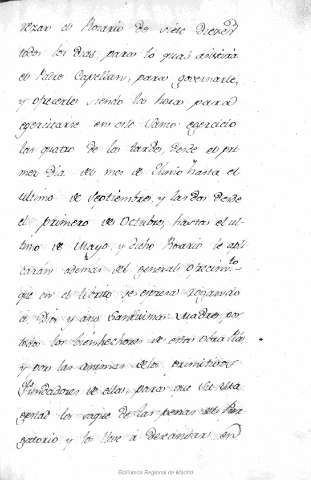 rezar el Rosario de siete diezes
todos los dias, para lo qual asistirá
el Padre Capellan, para governarle,
y ofrecerle siendo la hora para
egercitarse en este Santo egercicio
las quatro de la tarde, desde el pri
mer dia del mes de Junio hasta el
ultimo de Septiembre, y las dos desde
el primero de Octubre, hasta el ul
timo de Mayo, y dicho Rosario le apli
carán ademas del general ofrecim.to
que en el librito se expresa rogando
á Dios y a su Santisima Madre, por
todos los bienhechores de esta Obra Pia
y por las animas de los primitivos
Fundadores de ella, para que Su Ma
gestad los saque de las penas del Pur
gatorio y los lleve a descansar en
Biblioteca Regional de Madrid